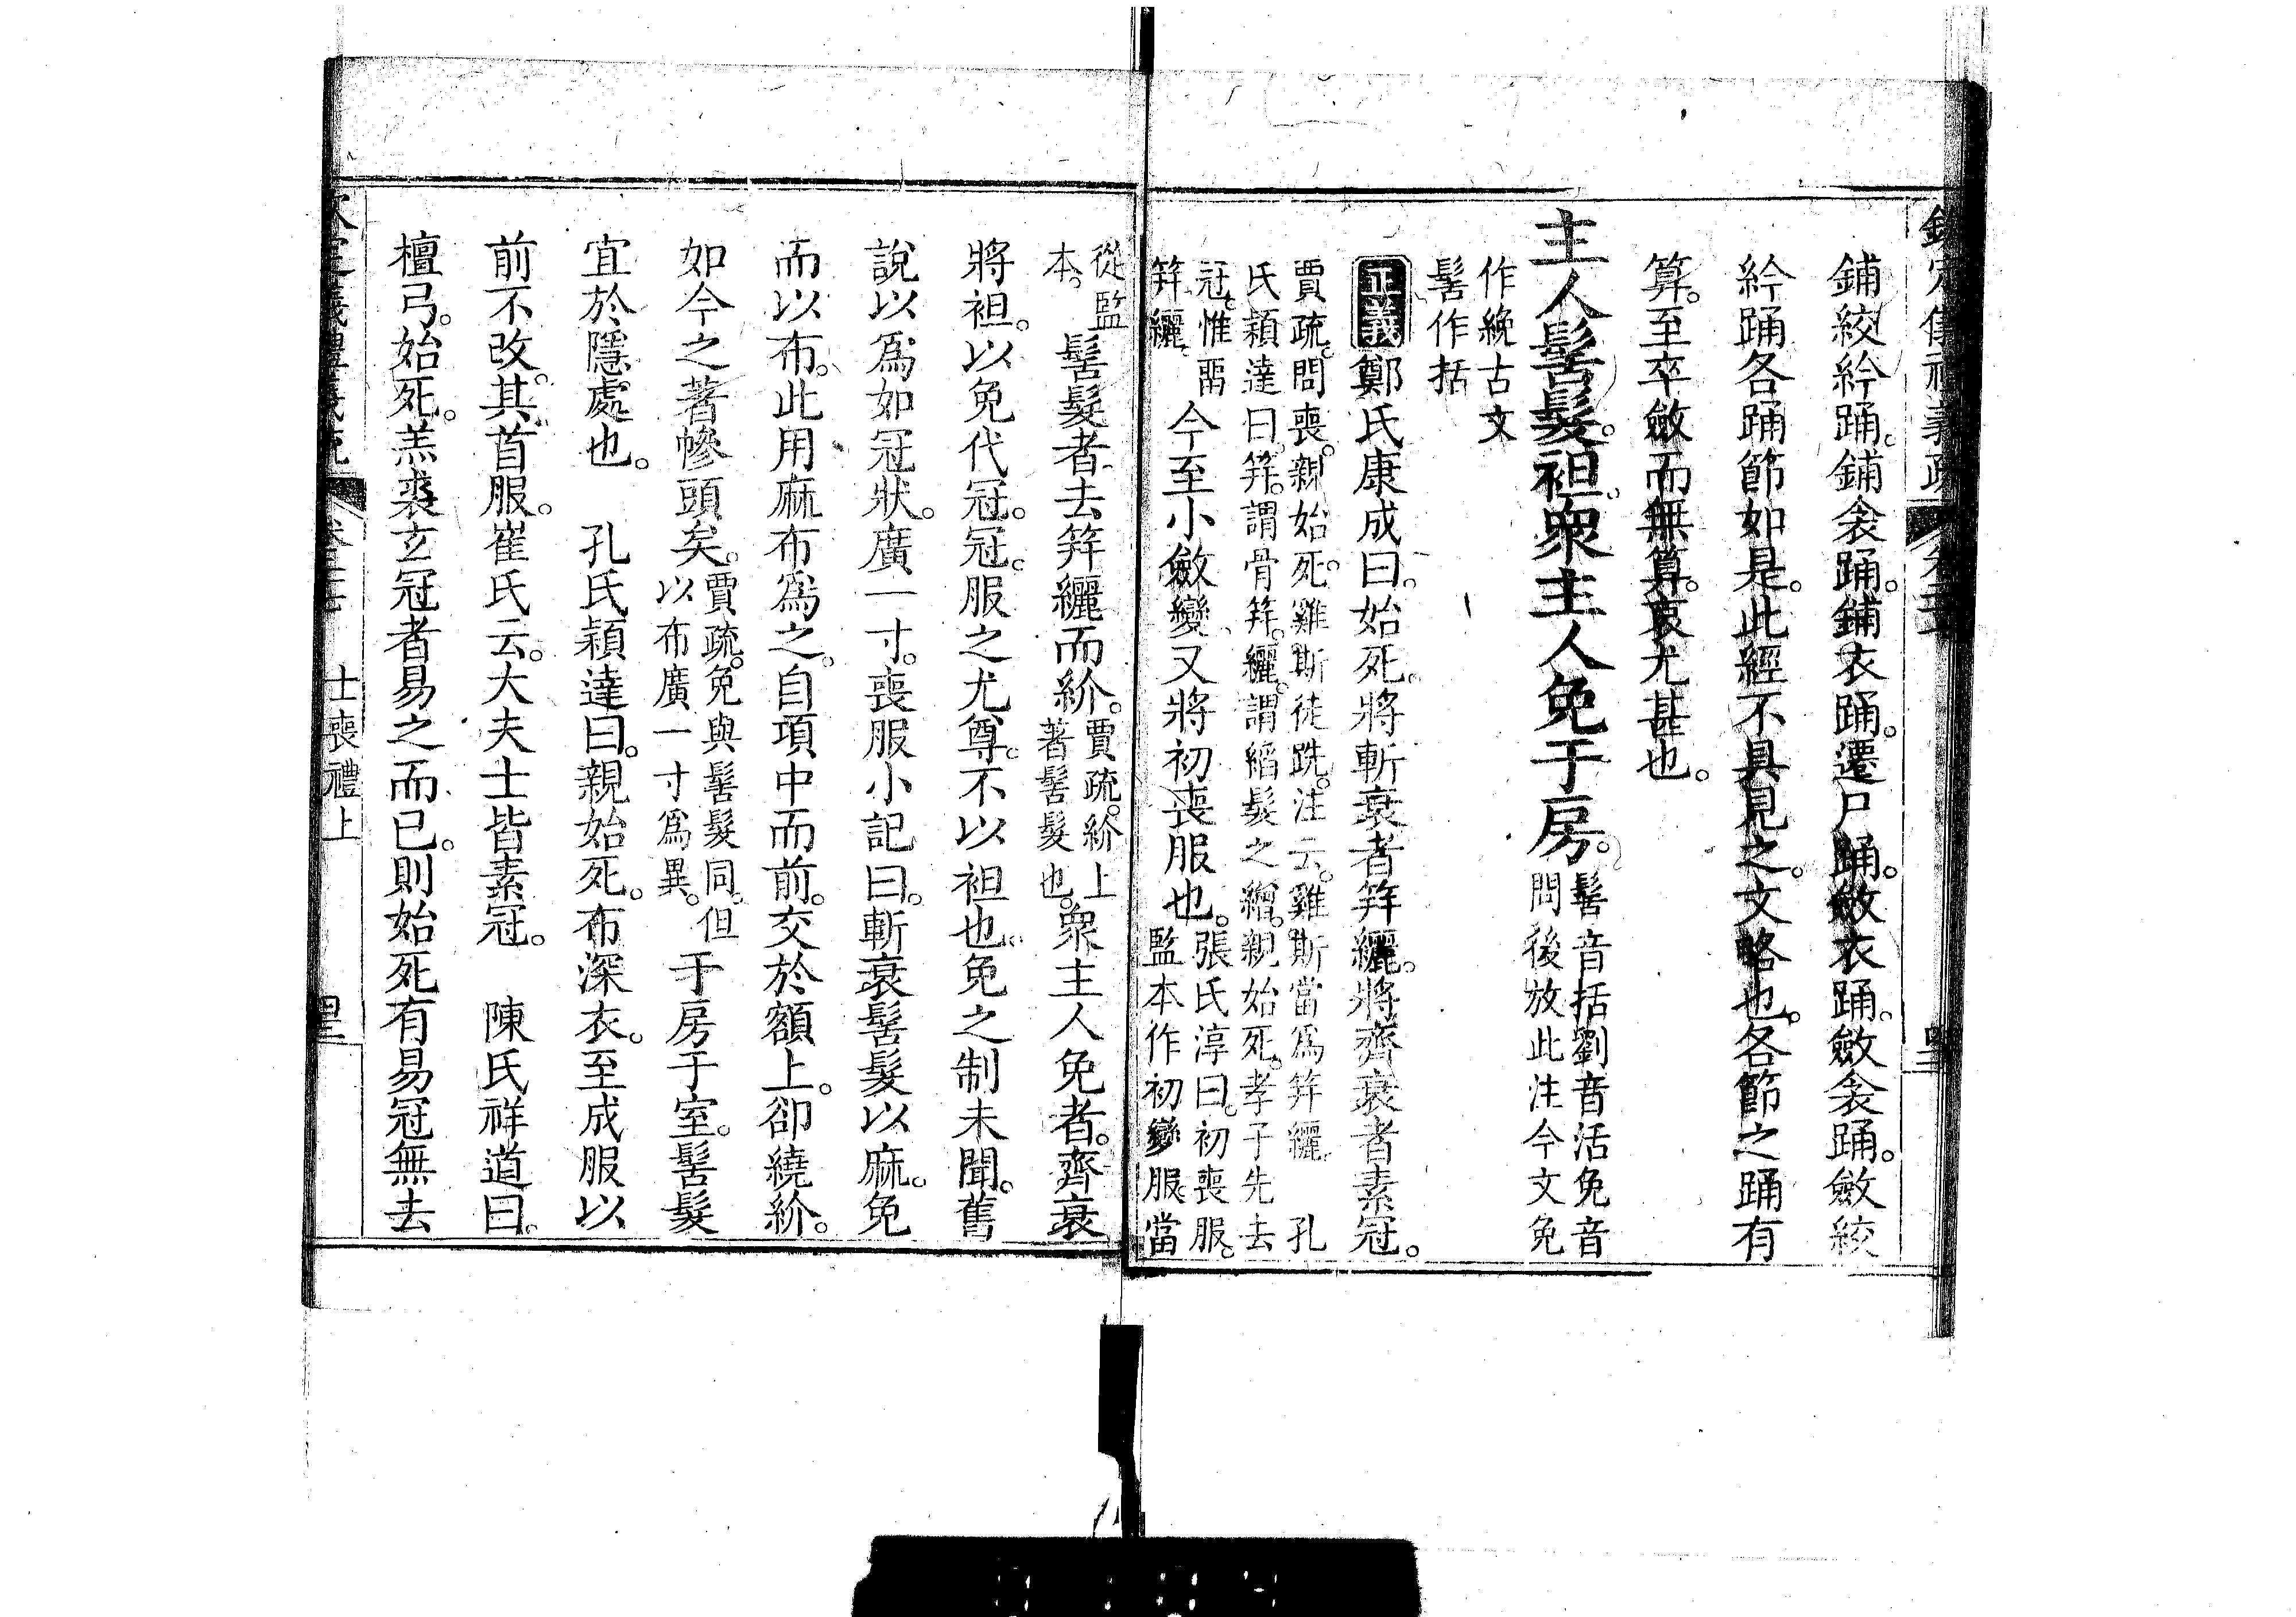 鋪絞紟踊。鋪衾踊。鋪衣踊。遷尸踊。斂衣踊。斂衾踊。斂絞
紟踊各踊節如是。此經不具見之。文略也。各節之踊有
算。至卒斂而無算。哀尤甚也。
主人髺髮袒。衆主人免于房。髺音括劉音活免音
問後放此注今文免
作絻古文
髺作括
正義鄭氏康成曰。始死。將斬衰者笄纚。將齊衰者素冠。
賈疏。問喪。親始死。雞斯徒跣。注云。雞斯當爲笄纚。 孔
氏穎達曰。笄。謂骨笄。纚。謂縚髮之繒。親始死。孝子先去
冠。惟畱
笄纚。今至小斂變又將初喪服也。張氏淳曰。初喪服。
監本作初變服當
從監
本。 髺髮者。去笄纚而紒。賈疏。紒上
著髺髮也。衆主人免者。齊衰
將袒。以免代冠。冠。服之尤尊。不以袒也。免之制未聞。舊
說以爲如冠狀。廣一寸。喪服小記曰。斬衰髺髮以麻。免
而以布。此用麻布爲之。自項中而前。交於額上。卻繞紒。
如今之著幓頭矣。賈疏。免與髺髮同。但
以布廣一寸爲異。于房于室。髺髮
宜於隱處也。 孔氏穎達曰。親始死。布深衣。至成服以
前不改。其首服。崔氏云。大夫士皆素冠。 陳氏祥道曰。
檀弓。始死。羔裘玄冠者易之而已。則始死有易冠無去
士喪禮上